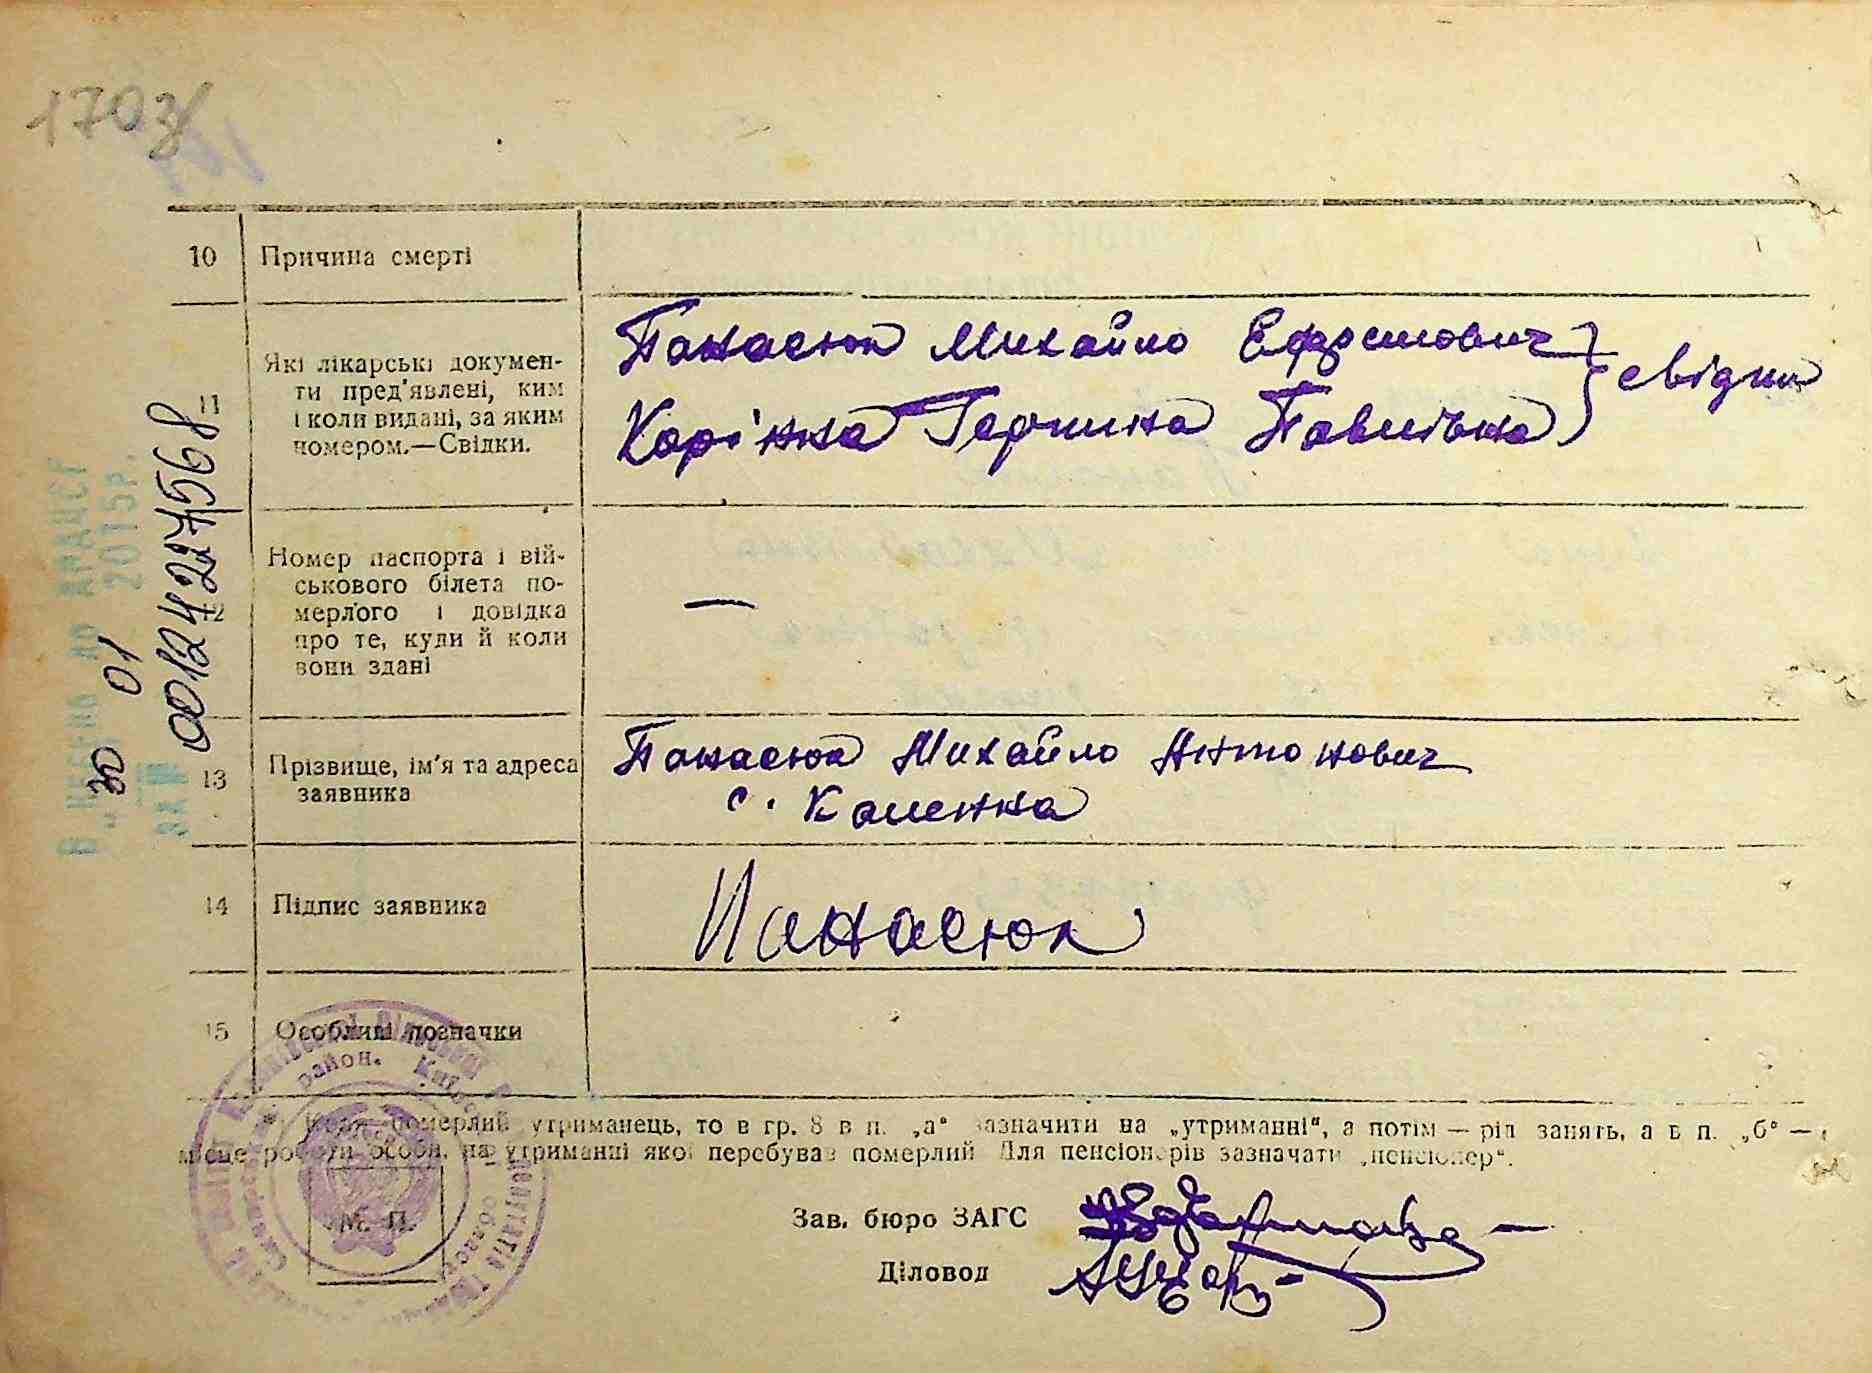 1703
10 Причина смерті
11 Які лікарські докумен-
ти пред'явлені, ким
і коли видані, за яким
номером.—Свідки.
Панасюк Михайло Ефремович
Павлівна
свідки
12 Номер паспорта і вій-
ськового білета по-
мерлого і довідка
про те, куди й коли
вони здані
—
13 Прізвище, ім'я та адреса
заявника
Панасюк Михайло Антонович
с. Каленна
14 Підпис заявника
Панасюк
15 Особливі позначки
Коли померлий утриманець, то в гр. 8 в п. „а“ зазначити на „утриманні“, а потім — рід занять, а в п. „б“ —
місце роботи особи, на утриманні якої перебував померлий Для пенсіонерів зазначати „пенсіонер“.
Зав. бюро ЗАГС
Діловод
М. П.
район.
Внесено до ДРАЦСГ
„30 01 2015р.
за №
00124227568